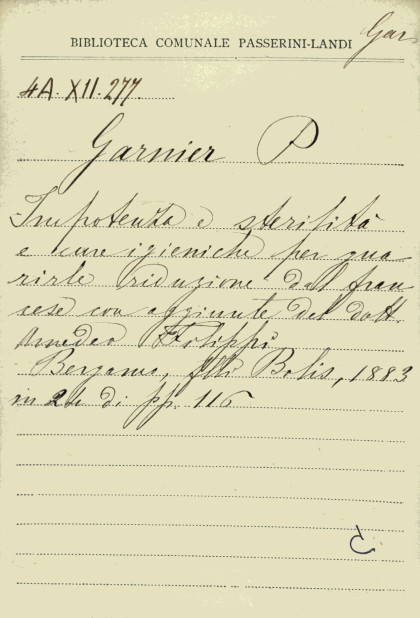 Gar
BIBLIOTECA COMUNALE PASSERINI-LANDI
4A. XII. 277
Garnier P
Impotenza e sterilità
e cure igieniche per gua
rirle riduzione dal fran
cese con aggiunte del dott.
Amedeo Filippi
Bergamo, flli Bolis, 1883
in 24 di pp. 116